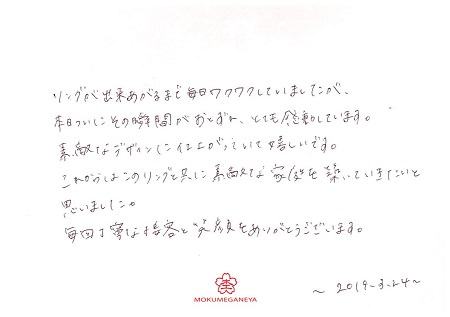 リングが出来あがるまで毎日ワクワクしていましたが、
本日ついにその瞬間がおとずれ、とても感動しています。
素敵なデザインに仕上がっていて嬉しいです。
これからはこのリングと共に素敵な家庭を築いていきたいと
思いました。
毎回丁寧な接客と笑顔をありがとうございます。
MOKUMEGANEYA
~ 2019-3-24 ~